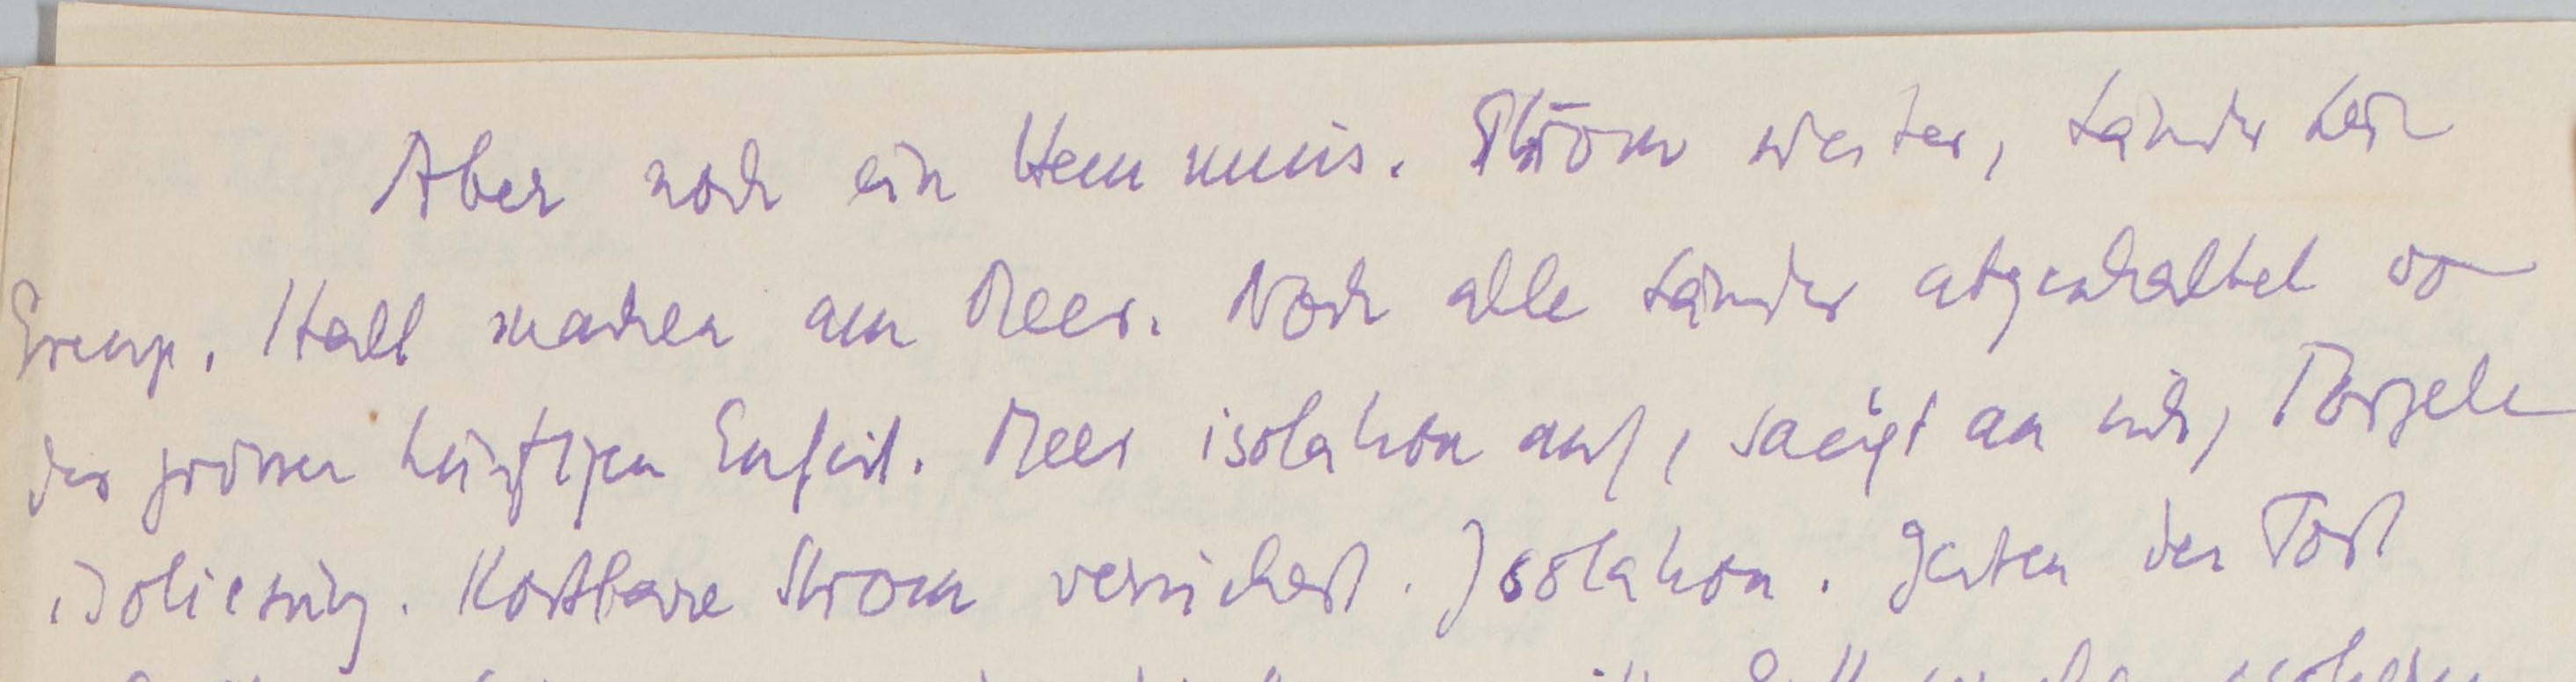 Aber noch ein Hemmnis. Ström weiter, Länder kein
Grenze. Halt machen am Meer. Noch alle Länder abgeschaltet vo
der grossen künftigen Einheit. Meer isolation auf, saugt an sich, Porzelan
isolierung. Kostbare Strom versichert. Isolation. Gesten der Tost